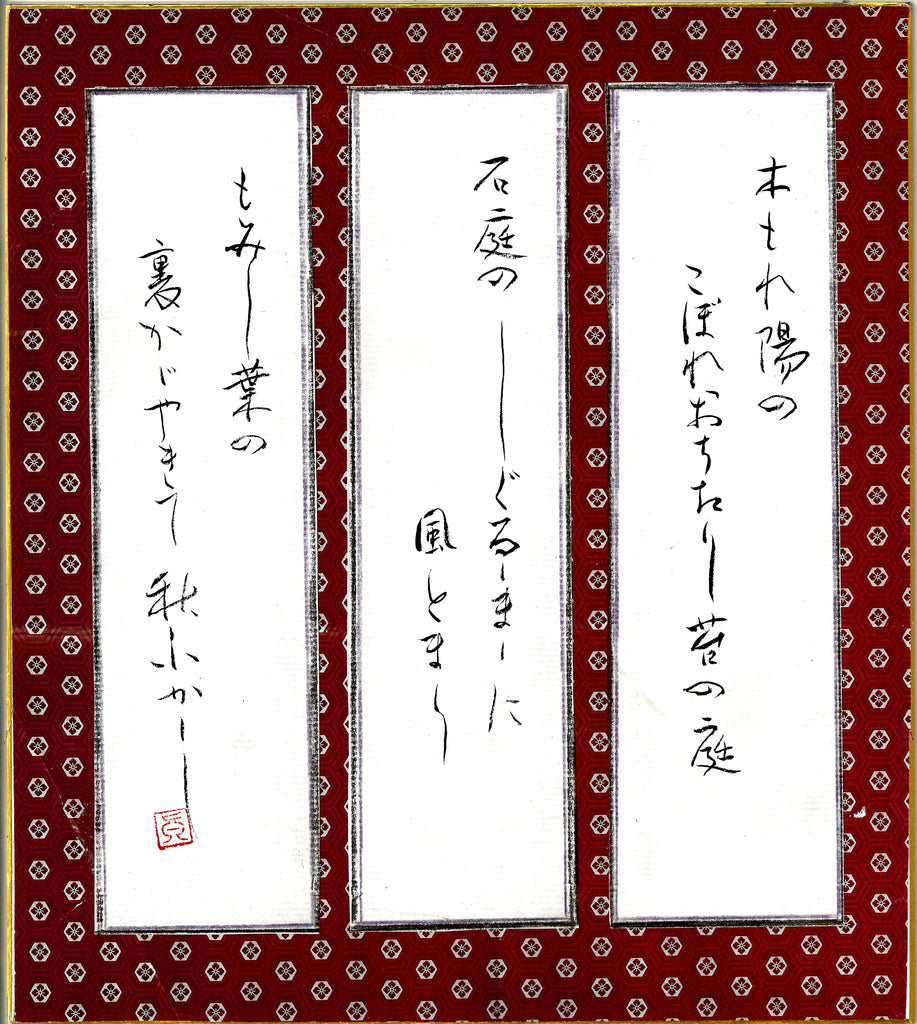 木もれ陽の
こぼれおちたり苔の庭
石庭の しぐるゝまゝに
風とまり
もみし葉の
裏かゞやきて 秋ふかし